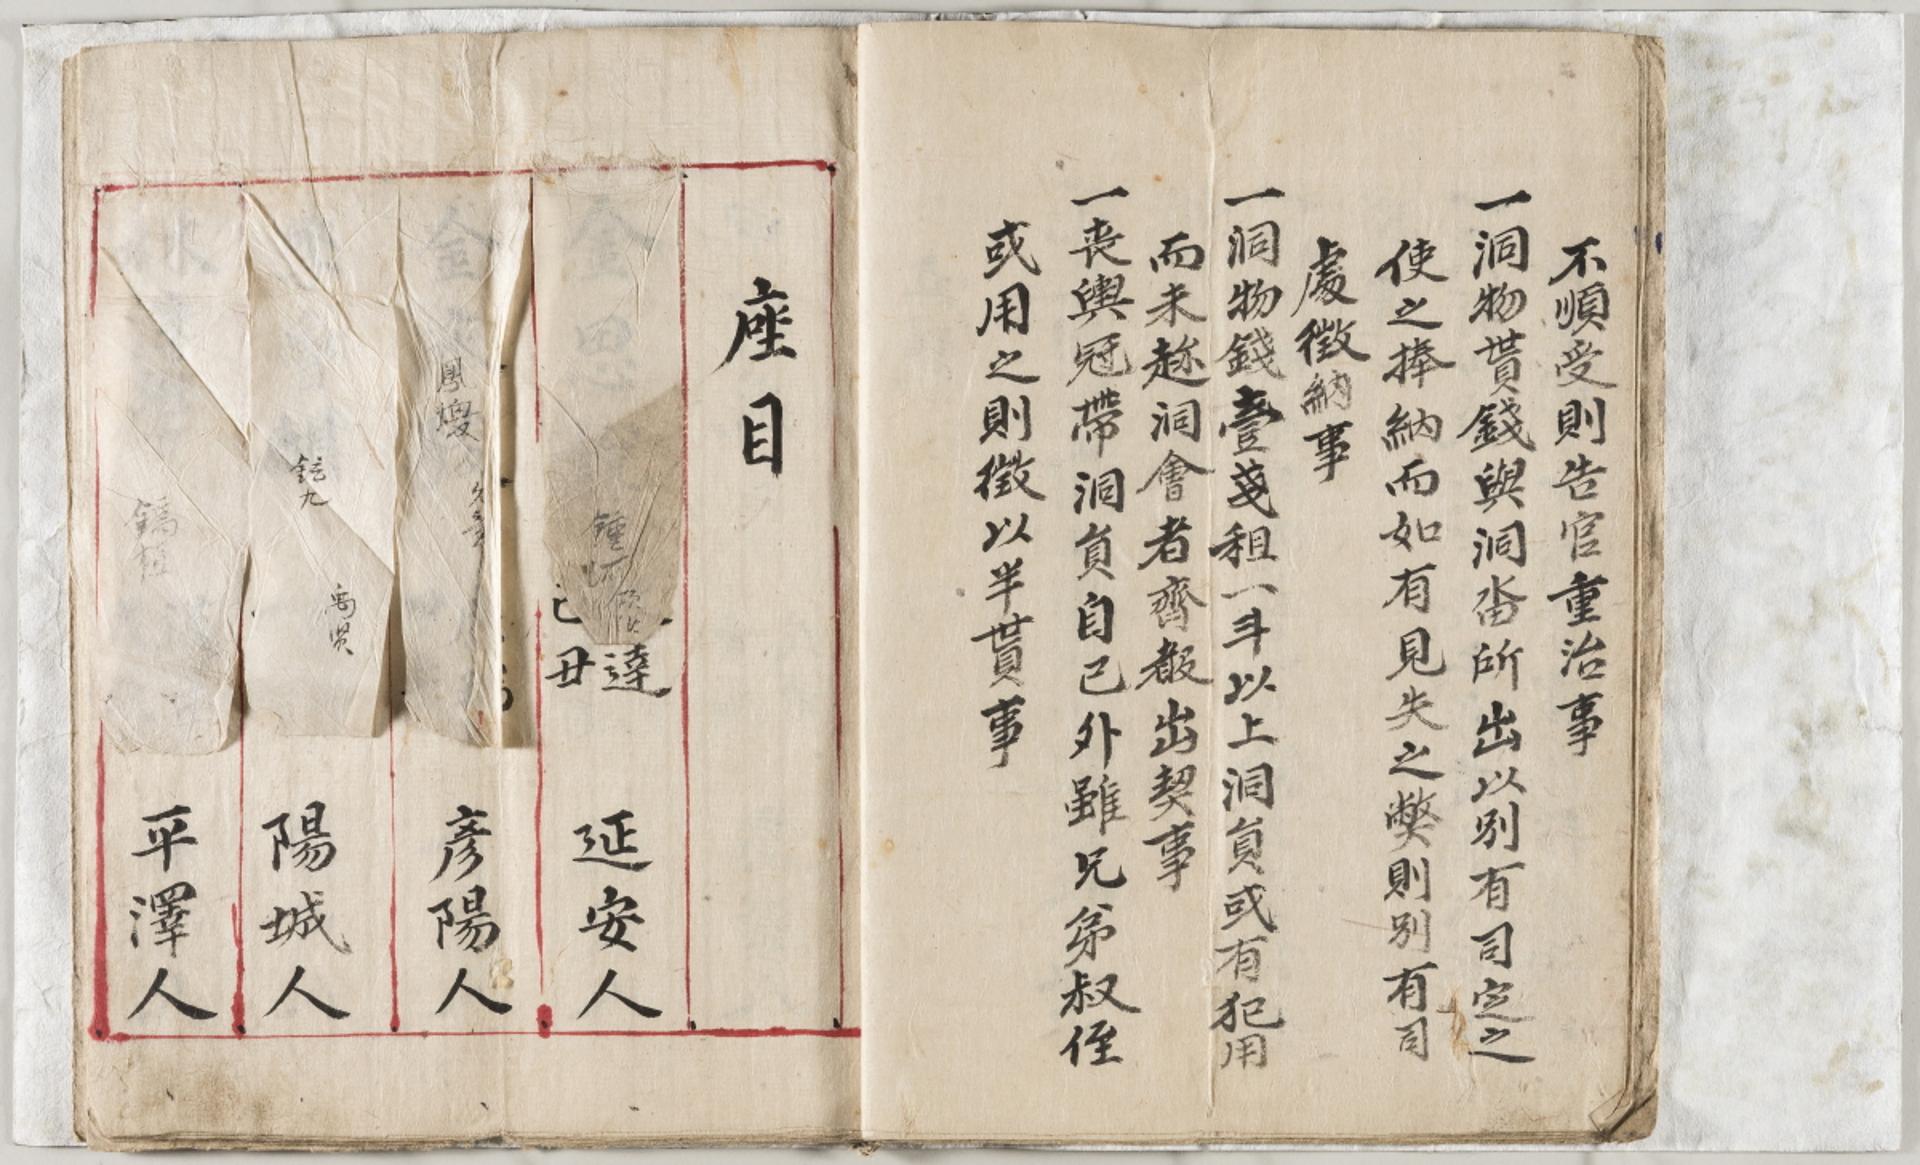 不順受則告官重治事
一洞物貰錢與洞畓所出以別有司定之
使之捧納而如有見失之弊則別有司
處徵納事
一洞物錢壹戔租一斗以上洞員或有犯用
而未趂洞會者齊嗀出契事
一丧輿冠帶洞員自己外雖兄弟叔侄
或用之則徵以半貰事
座目
金思
達
丑
延安人
金
鳳燮
彦陽人
鉉九
禹賢
陽城人
鎬桓
平澤人